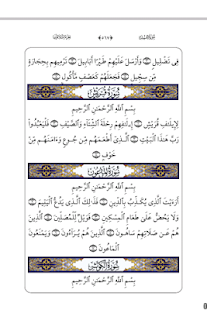 فِى تَضْلِيلٍ ۝ وَأَرْسَلَ عَلَيْهِمْ طَيْرًا أَبَابِيلَ ۝ تَرْمِيهِم بِحِجَارَةٍ
مِّن سِجِّيلٍ ۝ فَجَعَلَهُمْ كَعَصْفٍ مَّأْكُولٍ ۝
سُورَةُ قُرَيْشٍ
بِسْمِ ٱللَّهِ ٱلرَّحْمَٰنِ ٱلرَّحِيمِ
لِإِيلَٰفِ قُرَيْشٍ ۝ إِۦلَٰفِهِمْ رِحْلَةَ ٱلشِّتَآءِ وَٱلصَّيْفِ ۝ فَلْيَعْبُدُوا۟
رَبَّ هَٰذَا ٱلْبَيْتِ ۝ ٱلَّذِىٓ أَطْعَمَهُم مِّن جُوعٍ وَءَامَنَهُم مِّنْ
خَوْفٍۭ ۝
سُورَةُ الْمَاعُونِ
بِسْمِ ٱللَّهِ ٱلرَّحْمَٰنِ ٱلرَّحِيمِ
أَرَءَيْتَ ٱلَّذِى يُكَذِّبُ بِٱلدِّينِ ۝ فَذَٰلِكَ ٱلَّذِى يَدُعُّ ٱلْيَتِيمَ ۝
وَلَا يَحُضُّ عَلَىٰ طَعَامِ ٱلْمِسْكِينِ ۝ فَوَيْلٌ لِّلْمُصَلِّينَ ۝ ٱلَّذِينَ
هُمْ عَن صَلَاتِهِمْ سَاهُونَ ۝ ٱلَّذِينَ هُمْ يُرَآءُونَ ۝ وَيَمْنَعُونَ
ٱلْمَاعُونَ ۝
سُورَةُ الْكَوْثَرِ
بِسْمِ ٱللَّهِ ٱلرَّحْمَٰنِ ٱلرَّحِيمِ